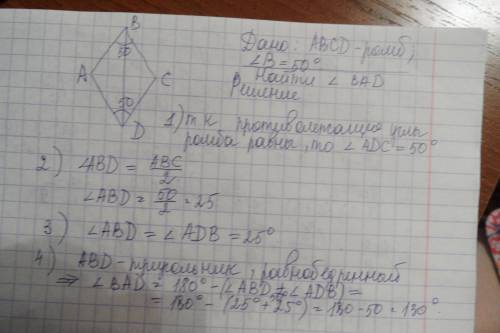 B
50
A
C
50
D
Дано: ABCD-ромб,
∠B=50°
Найти ∠ BAD
Решение
1) т к противолежащие углы
ромба равны, то ∠ADC=50°
2) ∠ABD = ABC/2
∠ABD = 50/2 = 25
3) ∠ABD = ∠ADB = 25°
4) ABD-треугольник, равнобедренный
⇒ ∠BAD = 180° - (∠ABD + ∠ADB) =
= 180° - (25° + 25°) = 180 - 50 = 130°.